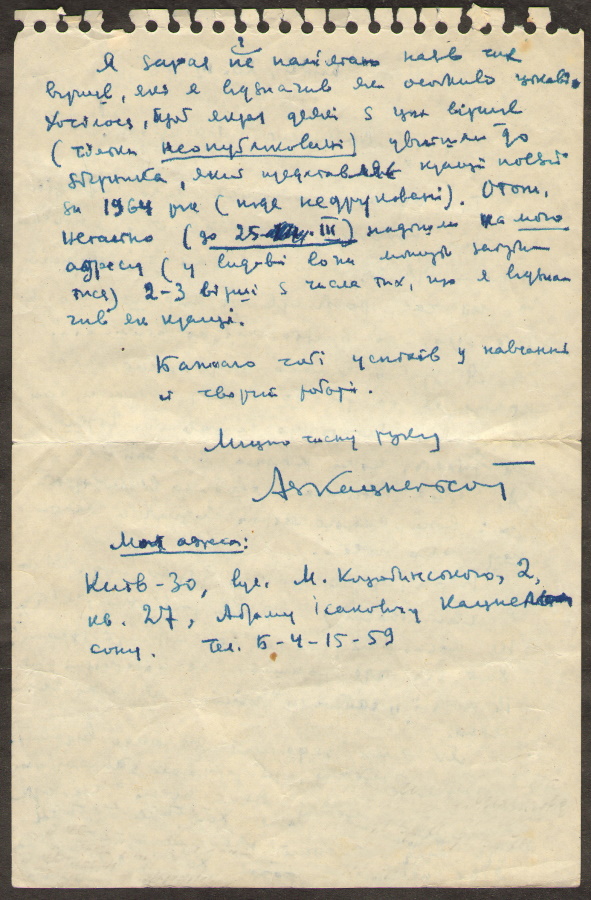 Я зараз не пам'ятаю назв тих
віршів, які я відзначив як особливо цікаві.
Хотілося, щоб якраз деякі з цих віршів
(тільки неопубліковані) увійшли до
збірника, який представляє кращі поезії
за 1964 рік (ніде недруковані). Отож,
негайно (до 25 III) надішли на мою
адресу (у видавн вони можуть загуби
тися) 2-3 вірші з числа тих, що я відзна
чив як кращі.
Бажаю тобі успіхів у навчанні
й творчій роботі.
Міцно тисну руку
Аб Кацнельсон
Моя адреса:
Київ-30, вул. М. Коцюбинського, 2,
кв. 27, Абраму Ісаковичу Кацнель
сону. Тел. Б-4-15-59